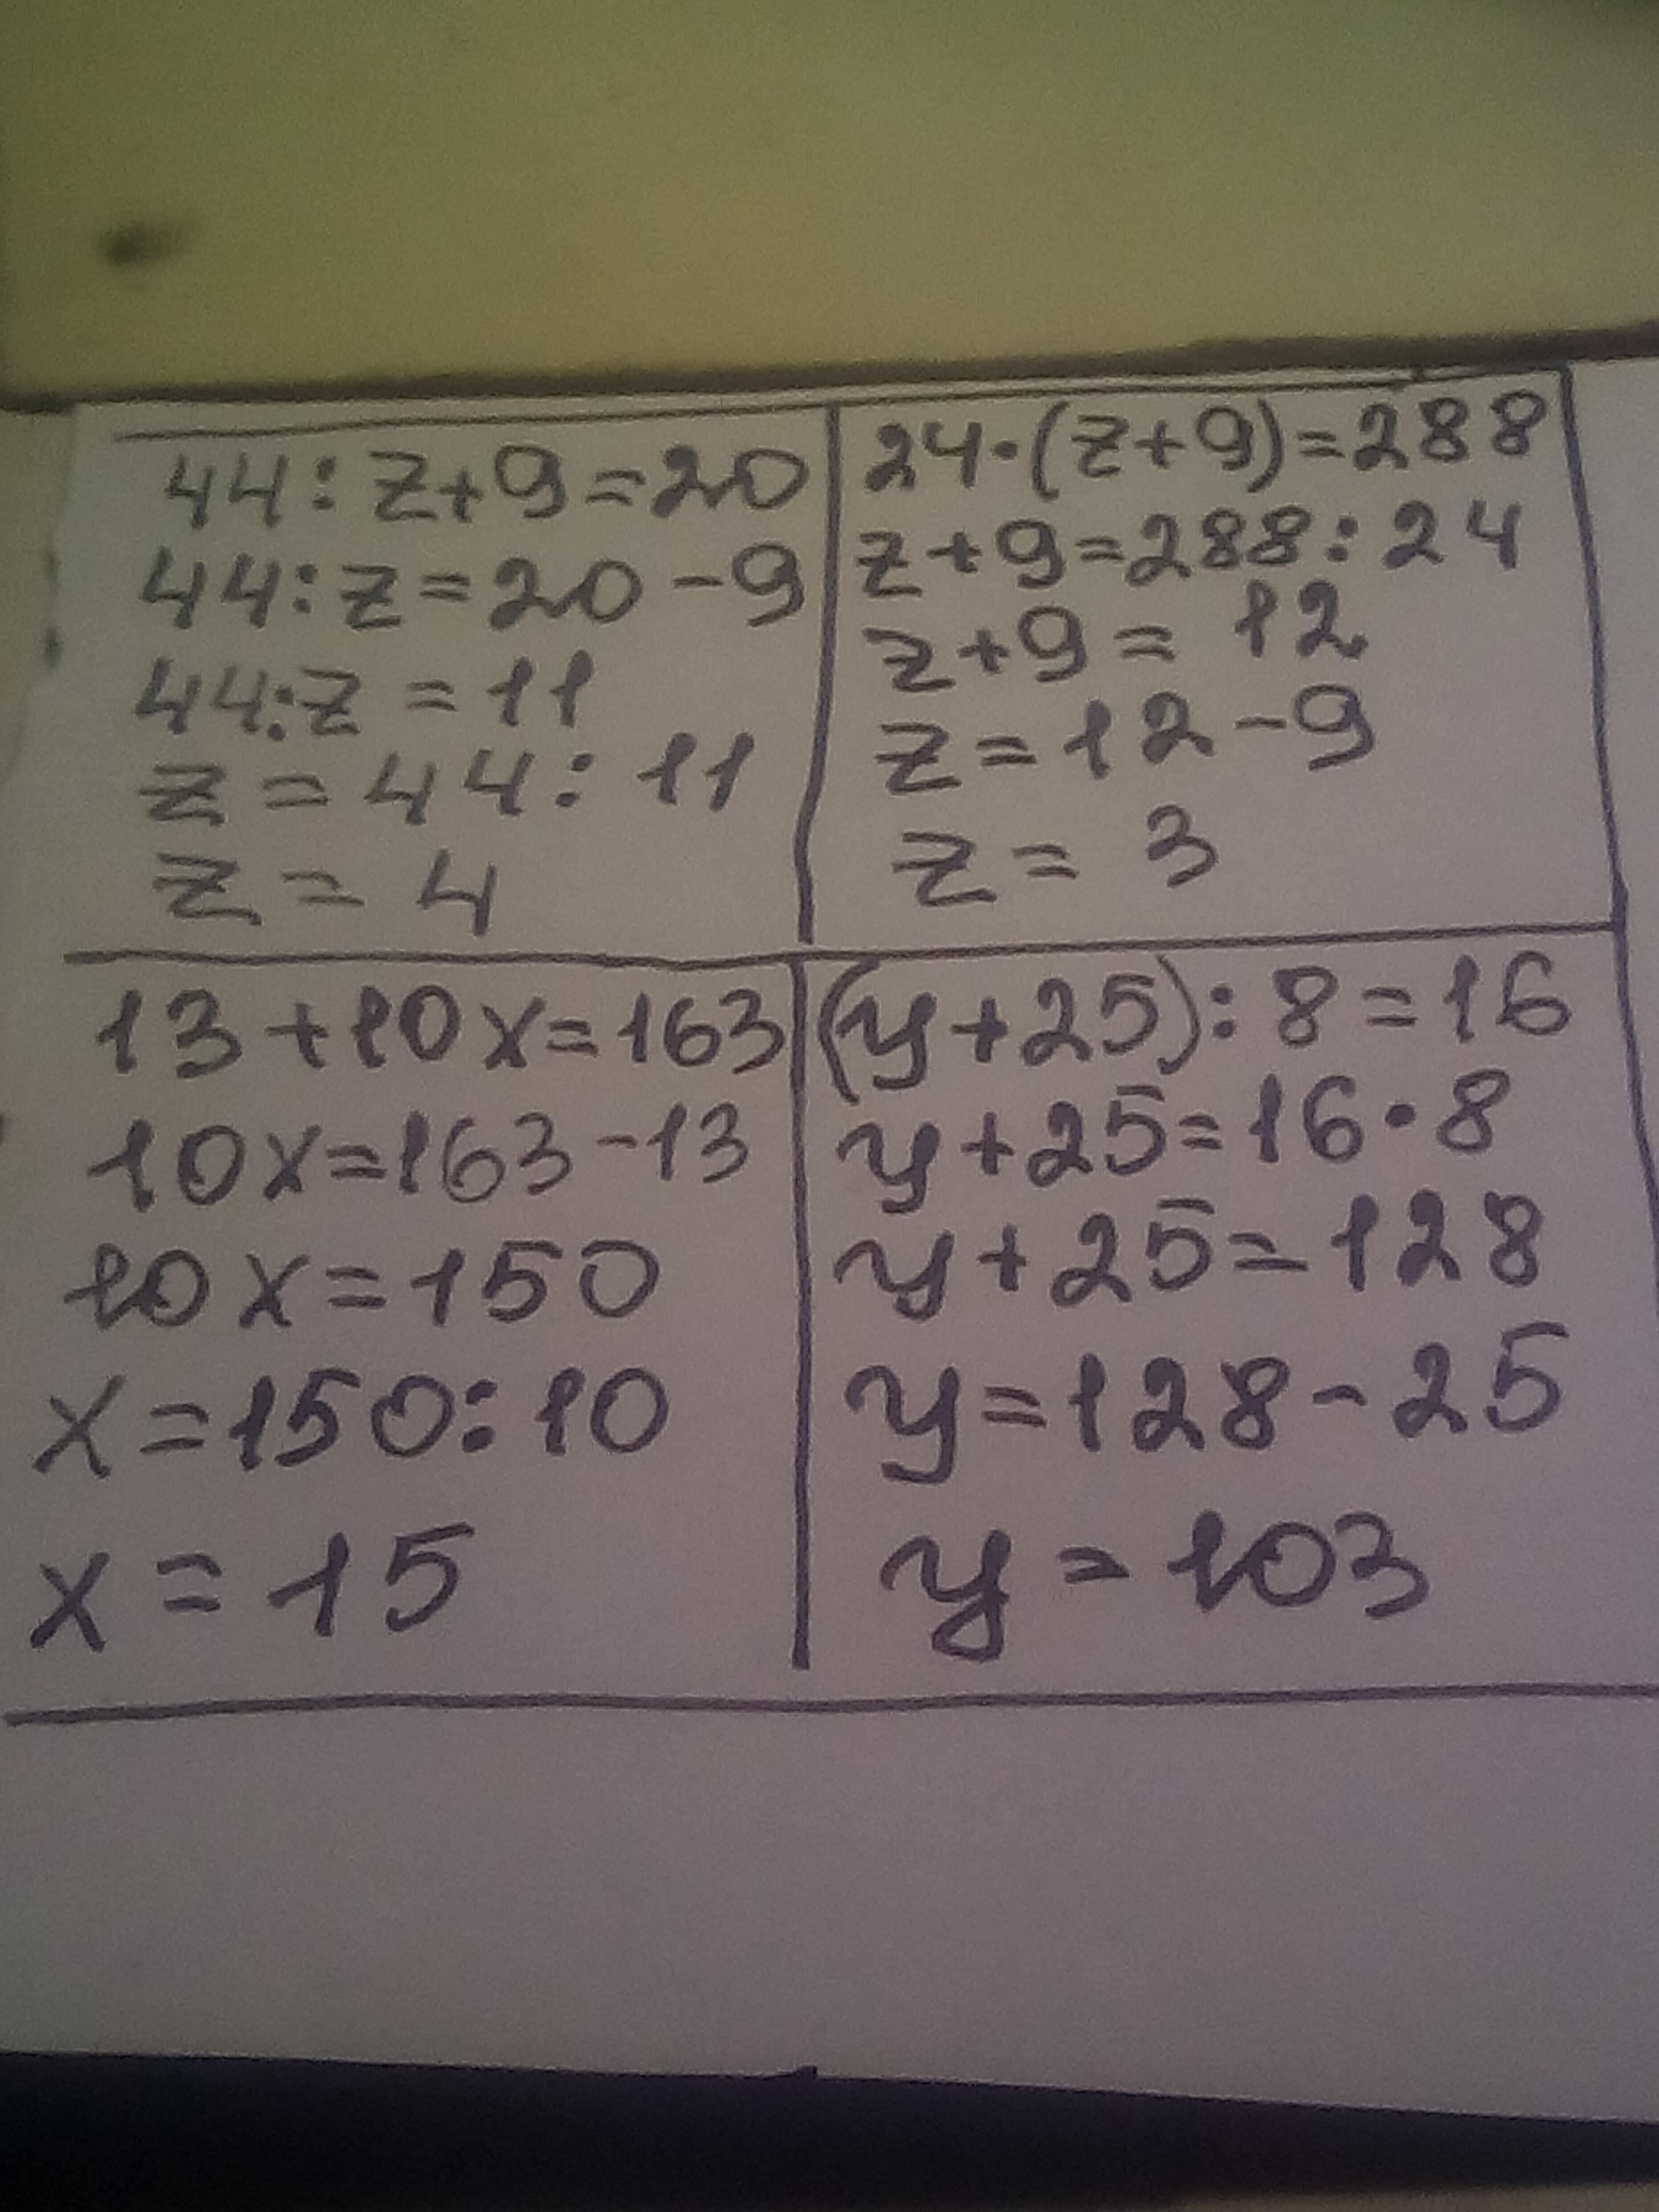 44:z+9=20
44:z=20-9
44:z=11
z=44:11
z=4
24·(z+9)=288
z+9=288:24
z+9=12
z=12-9
z=3
13+10x=163
10x=163-13
10x=150
x=150:10
x=15
(y+25):8=16
y+25=16·8
y+25=128
y=128-25
y=103